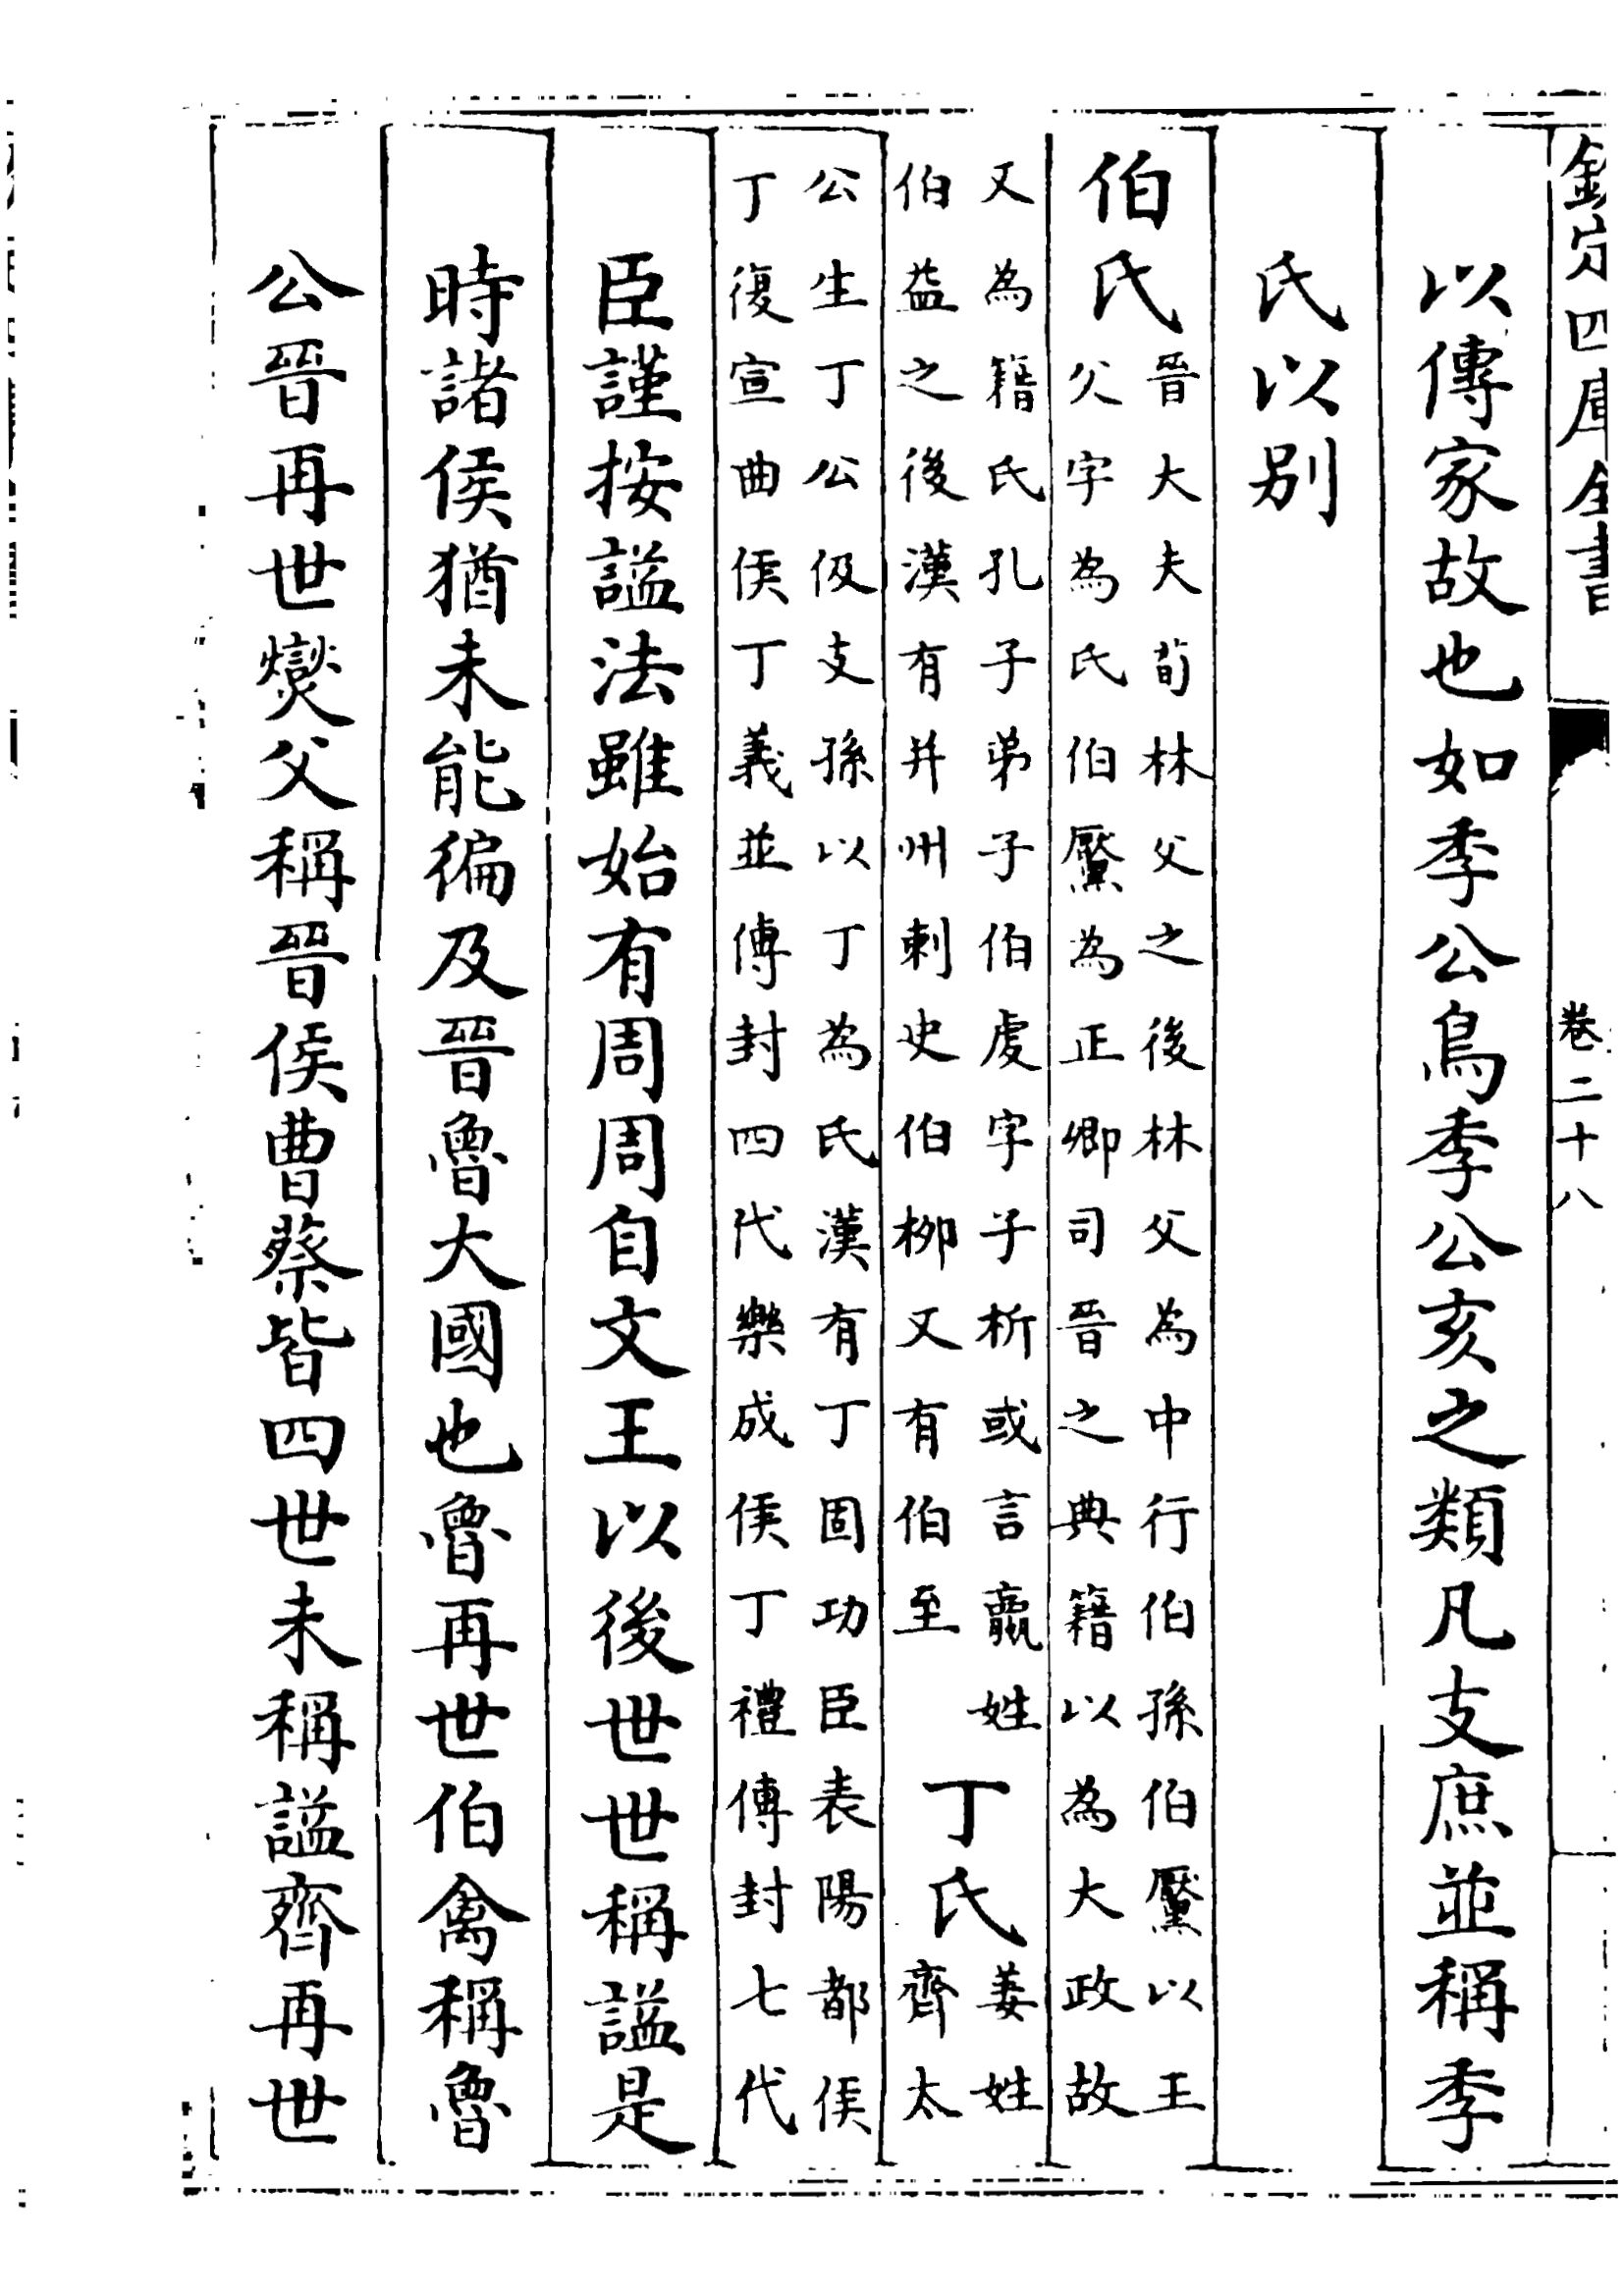 欽定四庫全書
卷二十八
以傳家故也如季公鳥季公亥之類凡支庶並稱季
氏以别
伯氏
晉大夫荀林父之後林父為中行伯孫伯黶以王
父字為氏伯黶為正卿司晉之典籍以為大政故
又為籍氏孔子弟子伯虔字子析或言嬴姓
伯益之後漢有并州刺史伯栁又有伯至
丁氏
姜姓
齊太
公生丁公伋支孫以丁為氏漢有丁固功臣表陽都侯
丁復宣曲侯丁義並傳封四代樂成侯丁禮傳封七代
臣謹按諡法雖始有周周自文王以後世世稱諡是
時諸侯猶未能徧及晉魯大國也魯再世伯禽稱魯
公晉再世燮父稱晉侯曹蔡皆四世未稱諡齊再世